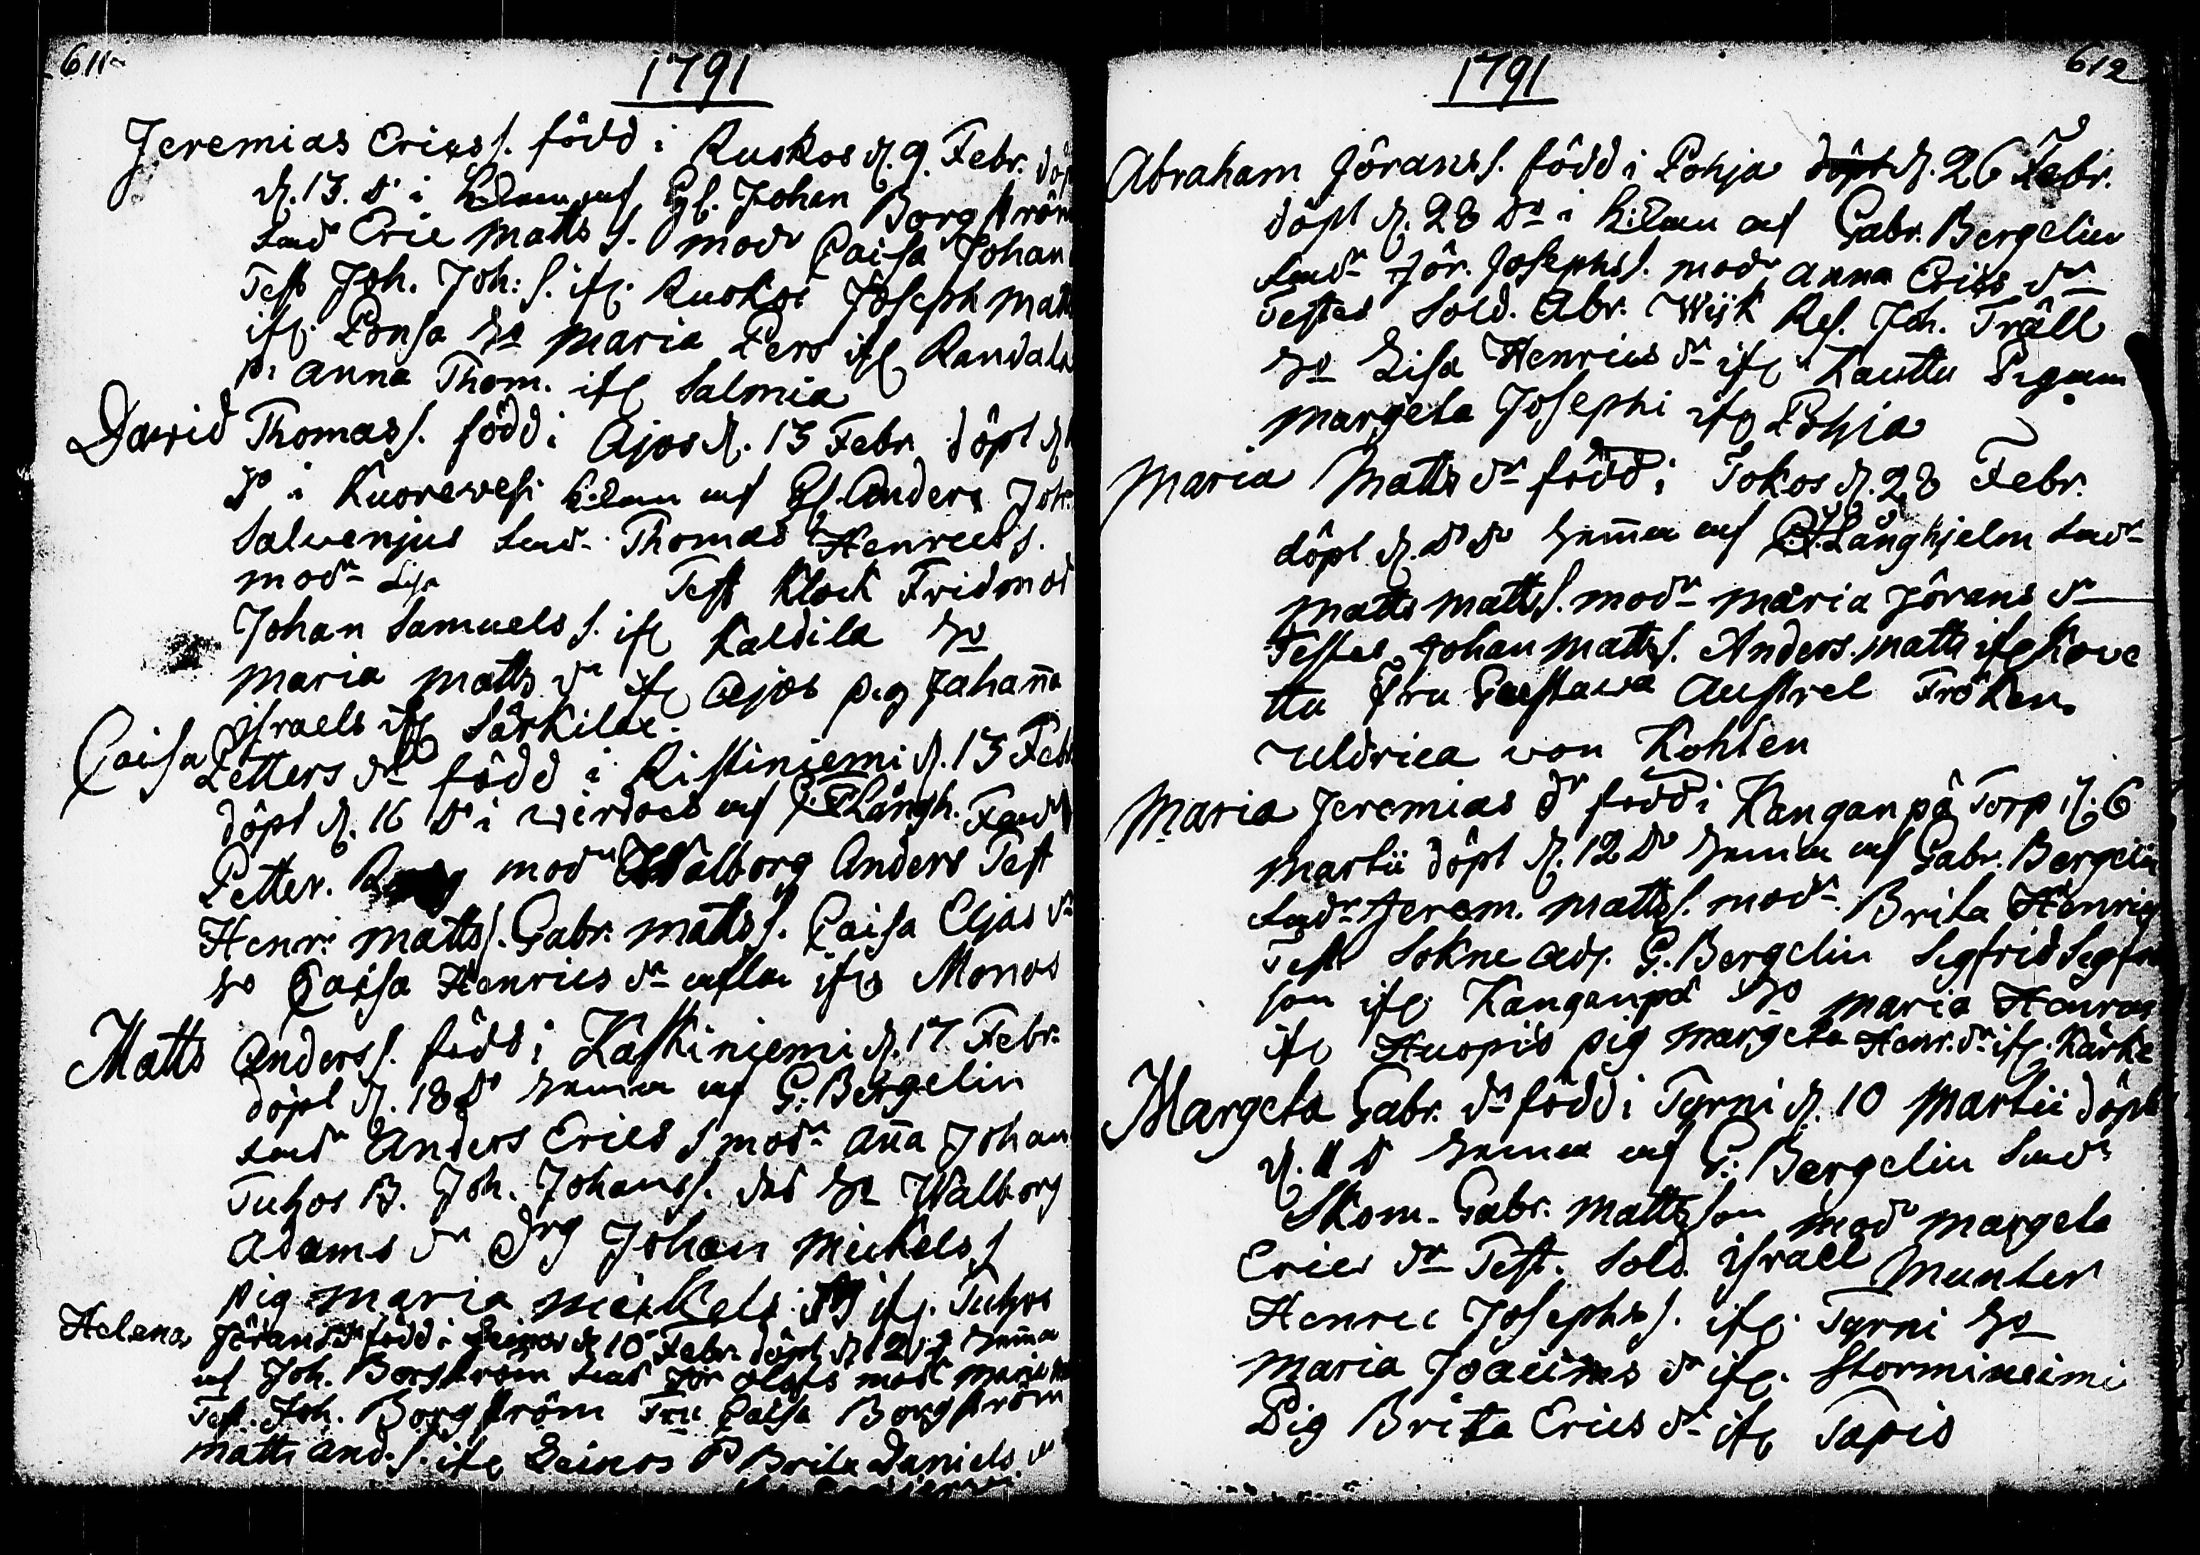 611
1791
Jeremias Ericss. född i Ruokos d. 9. Febr. döp
d. 13. d:o i af Johan Borgström
Eric Matts s. mod:r Caisa Johan
Test Joh. Joh: s. ifr. Ruokos Joseph Matts
ifr. Ponsa H:o Maria Pers ifr Randala
p. Anna Thom. ifr Salmia
David Thomas s. född i Ajos d. 13 Febr. döpt d
d:o i Kuorewesi af Anders Joh.
Salvenjus Thomas Henrics s.
mod:r Lisa Test Klock Fridmod
Johan Samuels s. ifr Kaldila H:o
Maria Matts d:r ifr Ajos pig Johanna
Israels ifr Särkilax.
Caisa Petters d:r född i Ristiniemi d. 13 Feb
döpt d. 16 d:o i Wirdois af Långh. Fad
Petter. mod:r Walborg Anders Test
Henr: Matts s. Gabr. Matts s. Caisa Eljas d:r
H:o Caisa Henrics d:r alla ifr Monos
Matts Anders s. född i Kaskiniemi d. 17 Febr.
döpt d. 18 d:o hemma af G: Bergelin
Fad:r Anders Erics s mod:r Anna Johan
Tuhos B. Joh. Johans s. H:o Walborg
Adams d:r Drg Johan Mickels s
pig Maria Mickels ifr. Tuhos
Helena Jörans d:r född i Leinos d 10 Febr. döpt d 12 hemma
af Joh. Borgström Fad:r Jör Olofs mod:r Maria
Test. Joh. Borgström Fru Caisa Borgström
Matts And. s. ifr Leinos P Brita Daniels d
612
1791
Abraham Jörans s. född i Pohja döpt d. 26 Febr.
döpt d. 28 d:o i af Gabr. Bergelin
Fad:r Jör. Josephs s. mod:r Anna Erics d:r
Testes Sold. Abr. Wijk Res. Joh. Träll
H:o Lisa Henrics d:r ifr Kauttu Pigan
Margeta Josephi ifr Pohja
Maria Matts d:r född i Tokos d. 28 Febr.
döpt d. d:o d:o hemma af Långhjelm Fad:r
Matts Matts s. mod:r Maria Jörans d:r
Testes Johan Matts s. Anders. Matts ifr Kove
ttu Fru Gustava Austrel Fröken
Uldrica von Kohlen
Maria Jeremias d:r född i Kanganpä Torp d. 6
Martii döpt d. 12 d:o hemma af Gabr. Bergelin
Fad:r Jerem. Matts s. mod:r Brita Henrig
Test Sokne Adj. G: Bergelin Segfrid Segfr
son ifr Kanganpä H:o Maria Henrics
ifr Huopis pig Margeta Henr. d:r ifr. Kärke
Margeta Gabr. d:r född i Tyrni d. 10 Martii döpt
d. 11 d:o hemma af G: Bergelin Fad:r
Skom. Gabr. Mattsson mod:r Margeta
Erics d:r Test. Sold. Israel Munter
Henric Josephs s. ifr. Tyrni H:o
Maria Joacims d:r ifr. Storminiemi
Pig Brita Erics d:r ifr Tapis